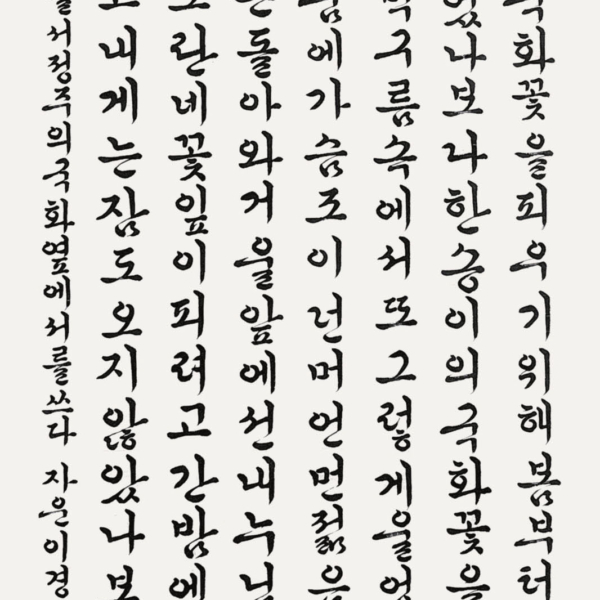 국화꽃을피우기위해봄부터
었나보다한송이의국화꽃을
먹구름속에서또그렇게울었
움에가슴조이던머언먼젊음
는돌아와거울앞에선내누님
노란네꽃잎이피려고간밤에
고내게는잠도오지않았나보
을서정주의국화옆에서를쓰다 자운이경